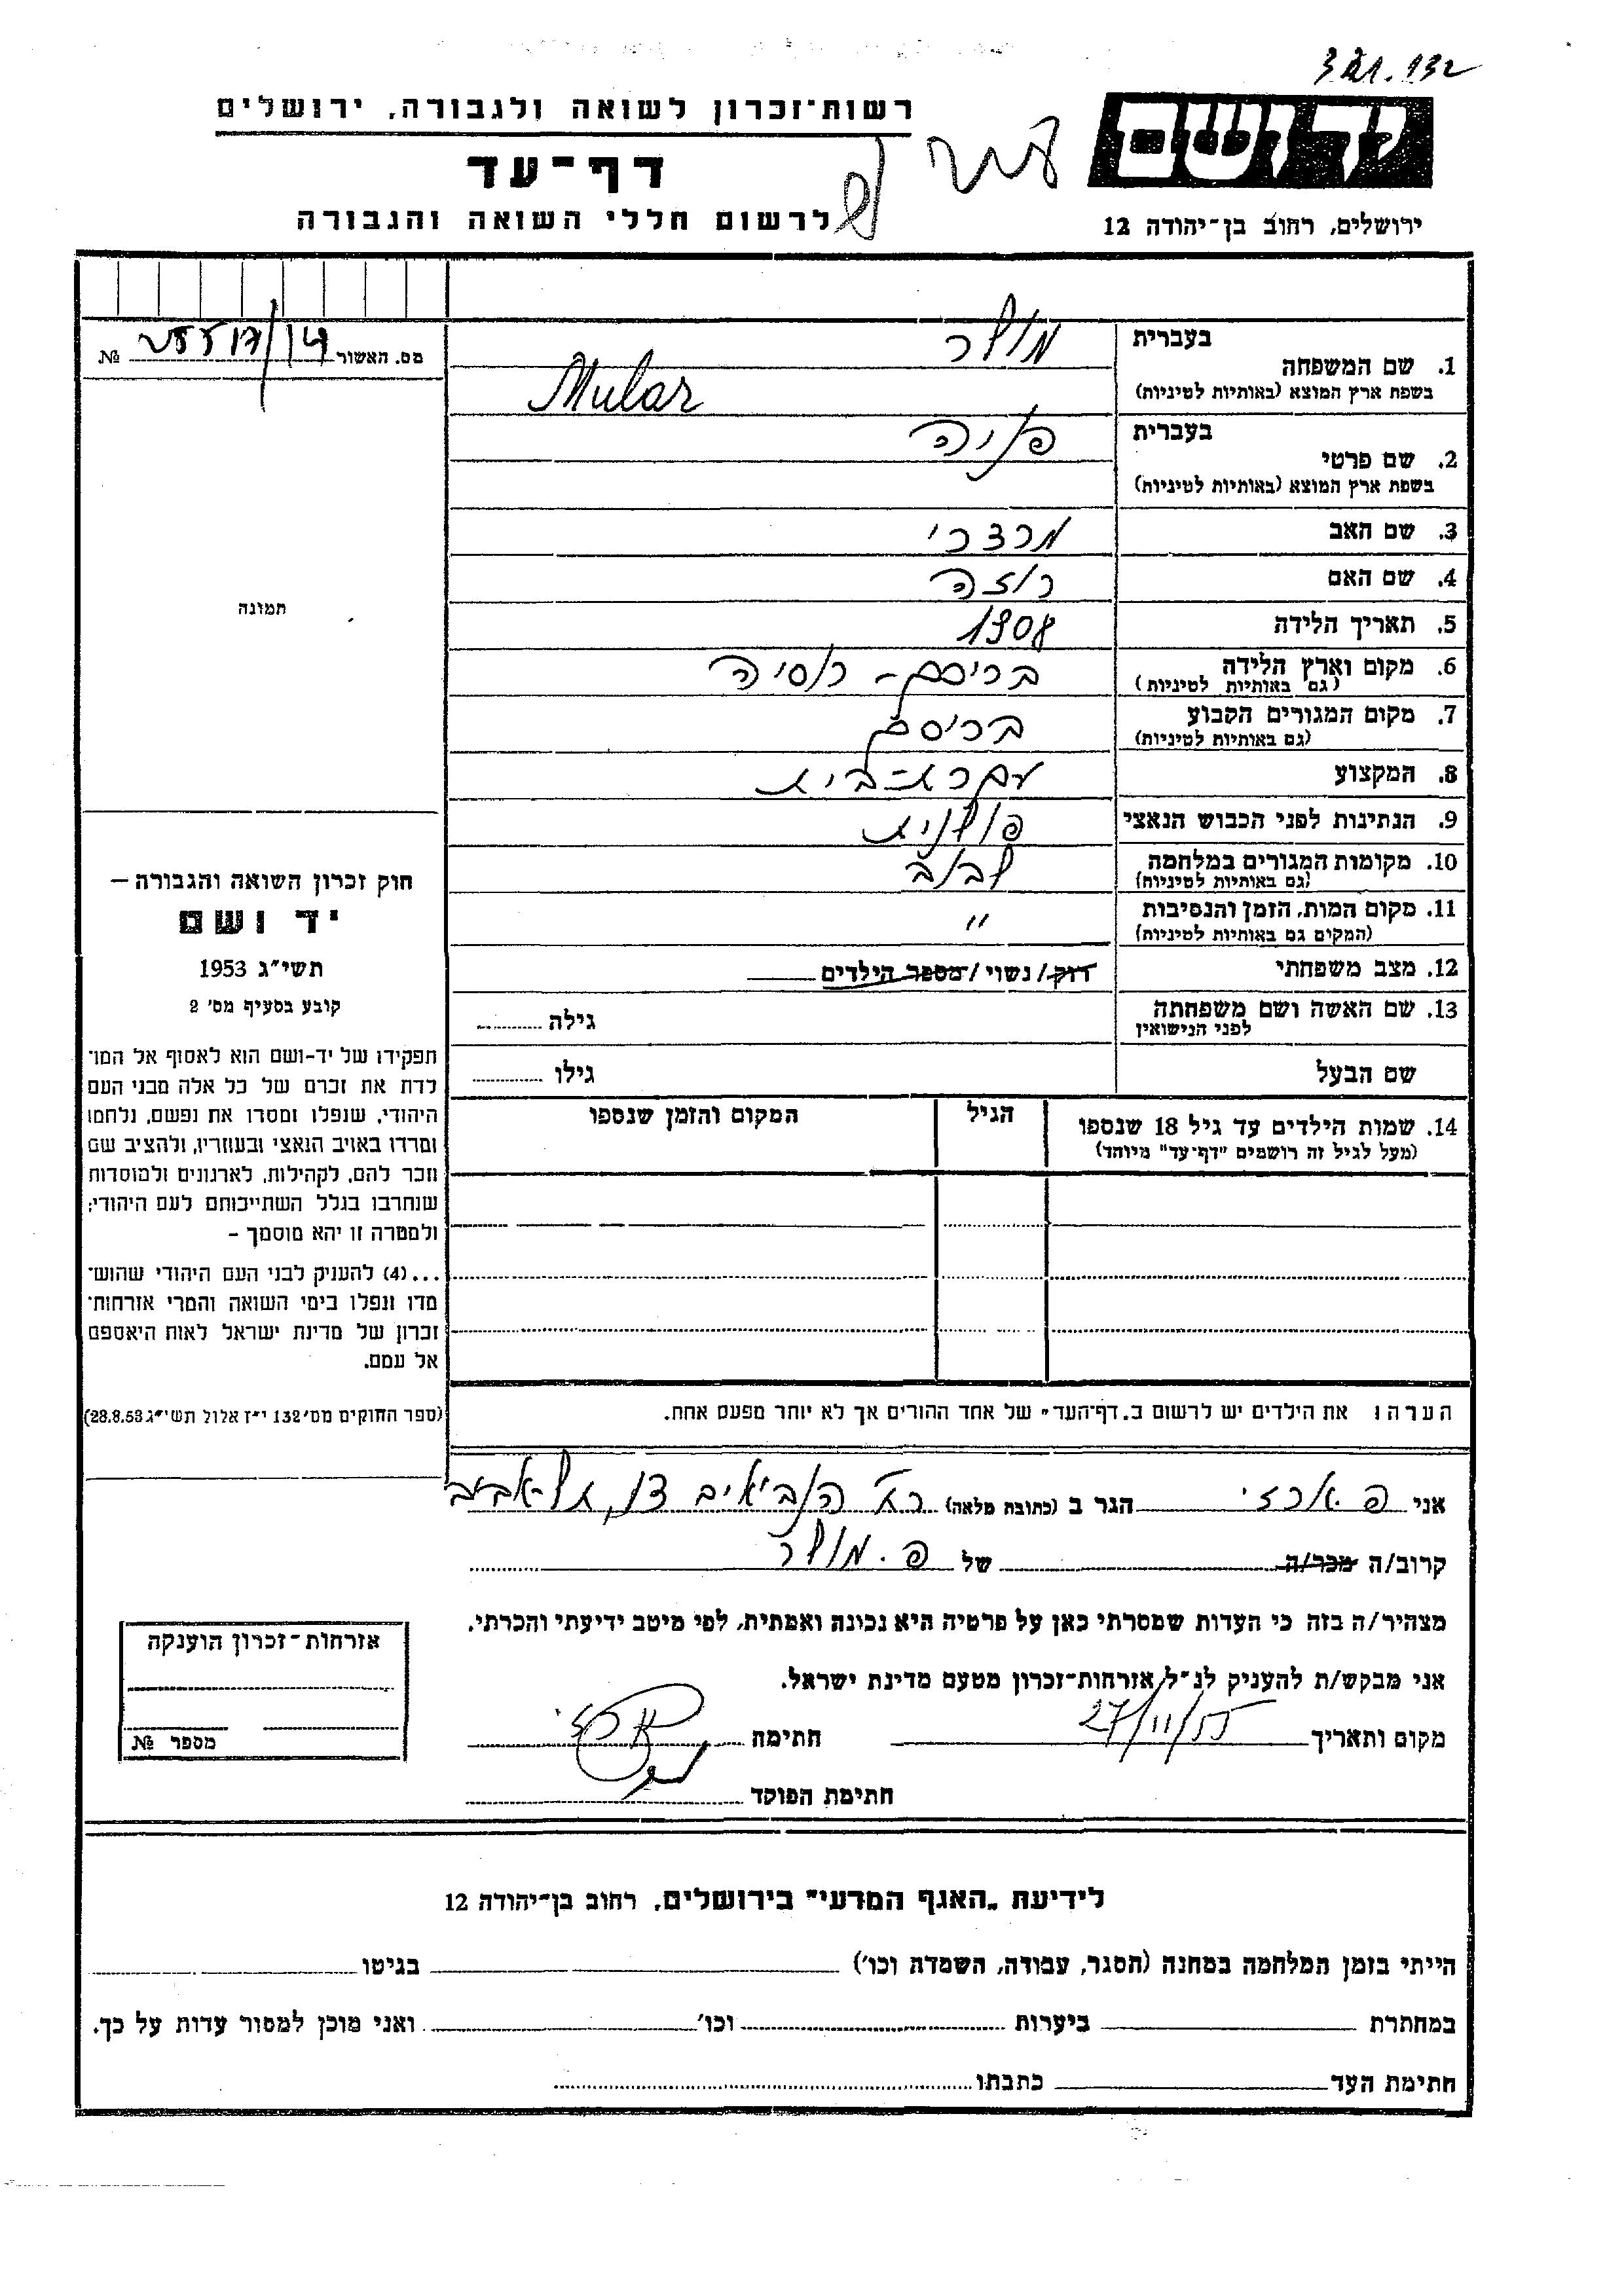 321.132
רשות־זכרון לשואה ולגבורה, ירושלים
יד ושם
דף־עד
לרשום חללי השואה והגבורה
ירושלים, רחוב בן־יהודה 12
מס. האשור № 17/14
בעברית מולר
1. שם המשפחה
בשפת ארץ המוצא (באותיות לטיניות) Mular
בעברית פניה
2. שם פרטי
בשפת ארץ המוצא (באותיות לטיניות)
3. שם האב מרדכי
4. שם האם רוזה
5. תאריך הלידה 1908
6. מקום וארץ הלידה בריסק – רוסיה
(גם באותיות לטיניות)
7. מקום המגורים הקבוע בריסק
(גם באותיות לטיניות)
8. המקצוע עקרת-בית
9. הנתינות לפני הכבוש הנאצי פולנית
10. מקומות המגורים במלחמה לבוב
(גם באותיות לטיניות)
11. מקום המות, הזמן והנסיבות "
(המקום גם באותיות לטיניות)
12. מצב משפחתי רווק / נשוי / מספר הילדים
13. שם האשה ושם משפחתה גילה
לפני הנישואין
שם הבעל גילו
14. שמות הילדים עד גיל 18 שנספו הגיל המקום והזמן שנספו
(מעל לגיל זה רושמים "דף־עד" מיוחד)
הערה: את הילדים יש לרשום ב„דף־העד" של אחד ההורים אך לא יותר מפעם אחת.
תמונה
חוק זכרון השואה והגבורה —
יד ושם
תשי"ג 1953
קובע בסעיף מס' 2
תפקידו של יד-ושם הוא לאסוף אל המו־
לדת את זכרם של כל אלה מבני העם
היהודי, שנפלו ומסרו את נפשם, נלחמו
ומרדו באויב הנאצי ובעוזריו, ולהציב שם
וזכר להם, לקהילות, לארגונים ולמוסדות
שנחרבו בגלל השתייכותם לעם היהודי;
ולמטרה זו יהא מוסמך –
...(4) להעניק לבני העם היהודי שהוש־
מדו ונפלו בימי השואה והמרי אזרחות־
זכרון של מדינת ישראל לאות היאספם
אל עמם.
(ספר החוקים מס' 132 י"ז אלול תשי"ג 28.8.53)
אני פ. ארזי הגר ב (כתובת מלאה) רח' הנביאים תל-אביב
קרוב/ה מכר/ה של פ. מולר
מצהיר/ה בזה כי העדות שמסרתי כאן על פרטיה היא נכונה ואמתית, לפי מיטב ידיעתי והכרתי.
אני מבקש/ת להעניק לנ"ל אזרחות־זכרון מטעם מדינת ישראל.
מקום ותאריך 27/11/55 חתימה ארזי
חתימת הפוקד
אזרחות־זכרון הוענקה
מספר №
לידיעת „האגף המדעי" בירושלים, רחוב בן־יהודה 12
הייתי בזמן המלחמה במחנה (הסגר, עבודה, השמדה וכו') בגיטו
במחתרת ביערות וכו' ואני מוכן למסור עדות על כך.
חתימת העד כתבתו